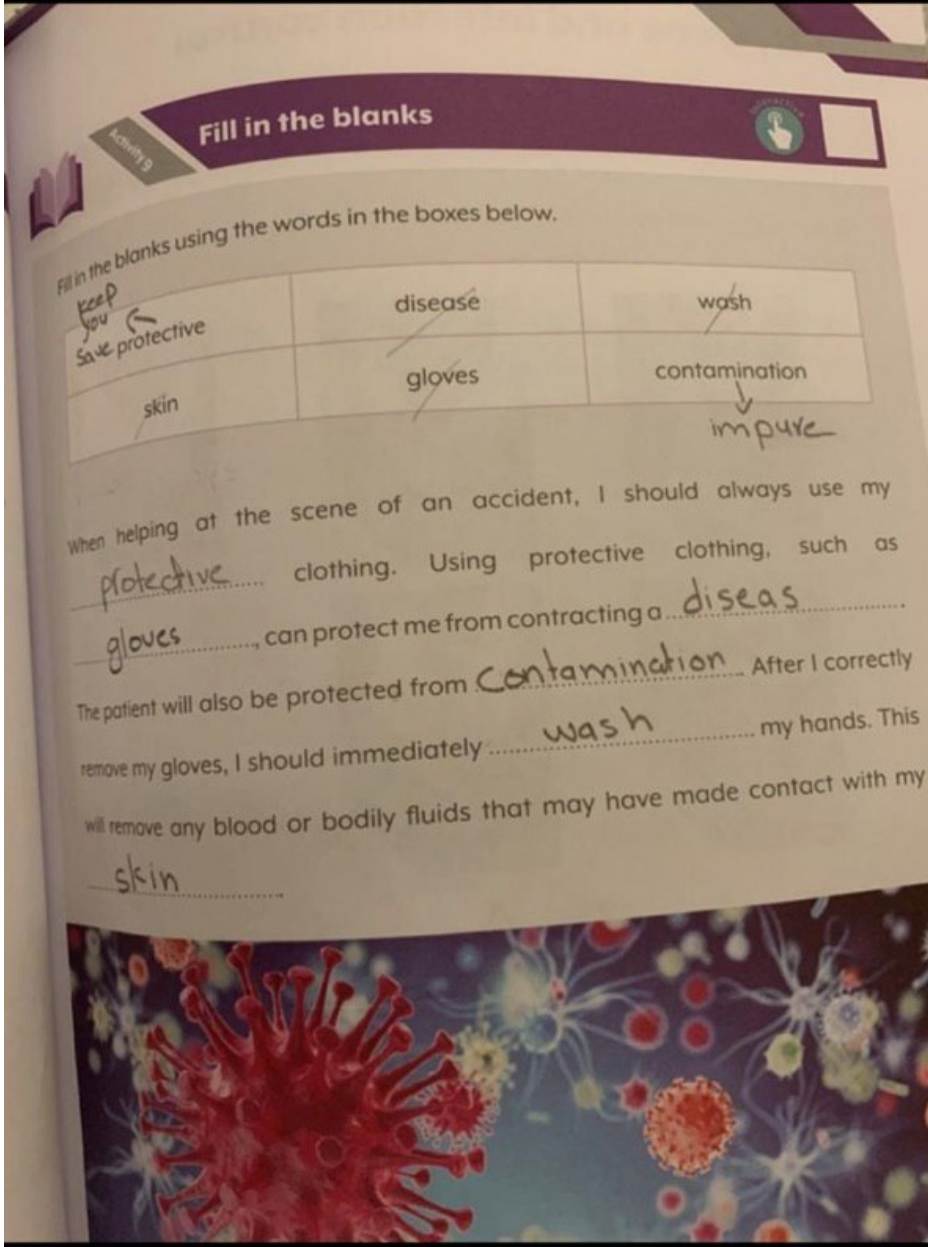 Activity 9
Fill in the blanks
Interactive
Fill in the blanks using the words in the boxes below.
keep
you
Save protective
disease
wash
skin
gloves
contamination
impure
When helping at the scene of an accident, I should always use my
protective clothing. Using protective clothing, such as
gloves, can protect me from contracting a diseas.
The patient will also be protected from Contamination. After I correctly
remove my gloves, I should immediately wash my hands. This
will remove any blood or bodily fluids that may have made contact with my
skin